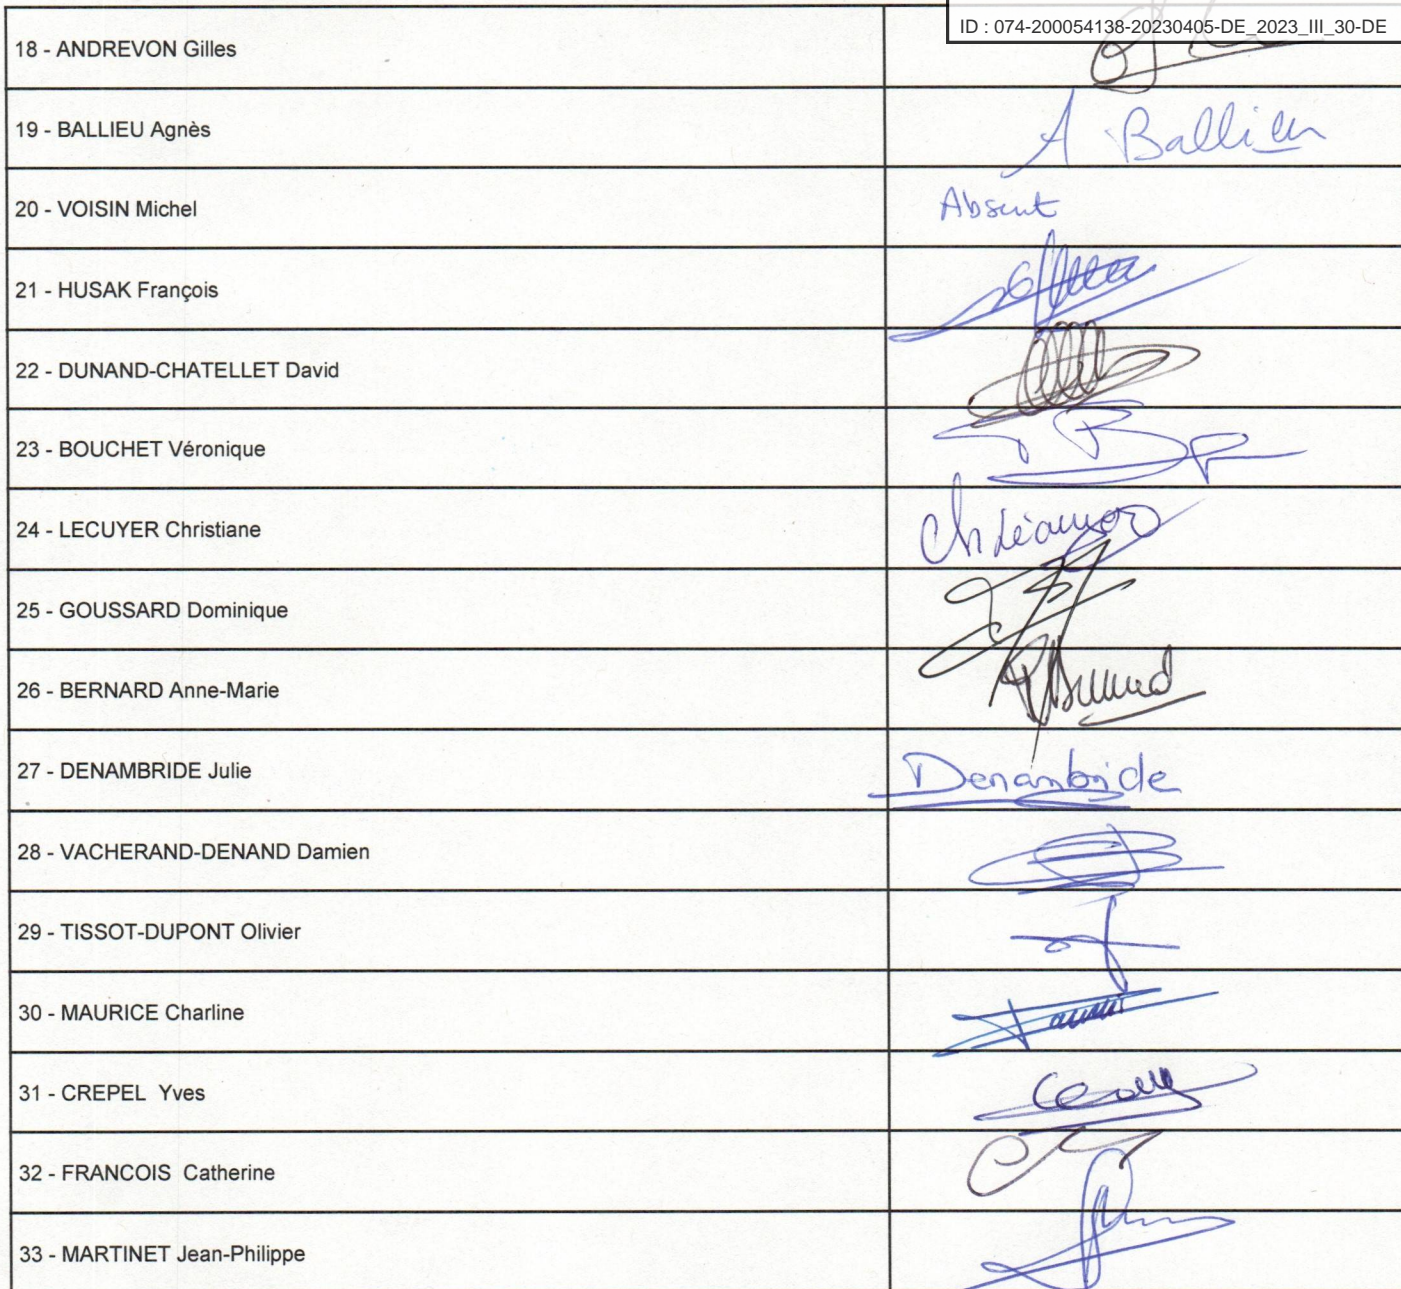 ID : 074-200054138-20230405-DE_2023_III_30-DE
18 - ANDREVON Gilles
19 - BALLIEU Agnès
A Ballieu
20 - VOISIN Michel
Absent
21 - HUSAK François
22 - DUNAND-CHATELLET David
23 - BOUCHET Véronique
24 - LECUYER Christiane
25 - GOUSSARD Dominique
26 - BERNARD Anne-Marie
27 - DENAMBRIDE Julie
Denambride
28 - VACHERAND-DENAND Damien
29 - TISSOT-DUPONT Olivier
30 - MAURICE Charline
31 - CREPEL Yves
32 - FRANCOIS Catherine
33 - MARTINET Jean-Philippe